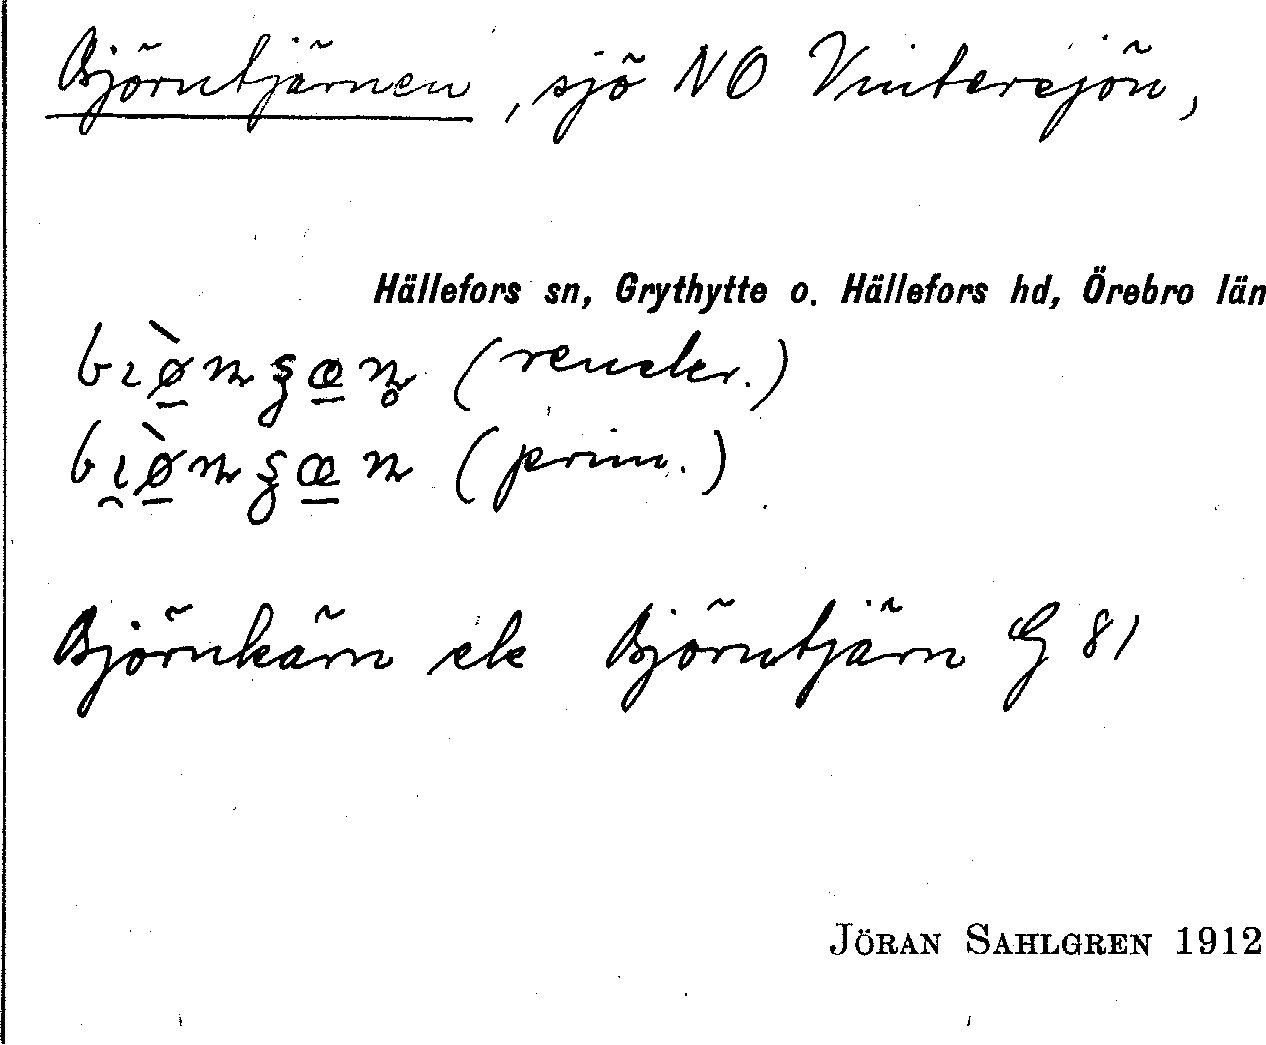 Björntjärnen, sjö NO Vintersjön,
Hällefors sn, Grythytte o. Hällefors hd, Örebro län
(renskr.)
(prim.)
Björnkärn el Björntjärn G 81
JÖRAN SAHLGREN 1912